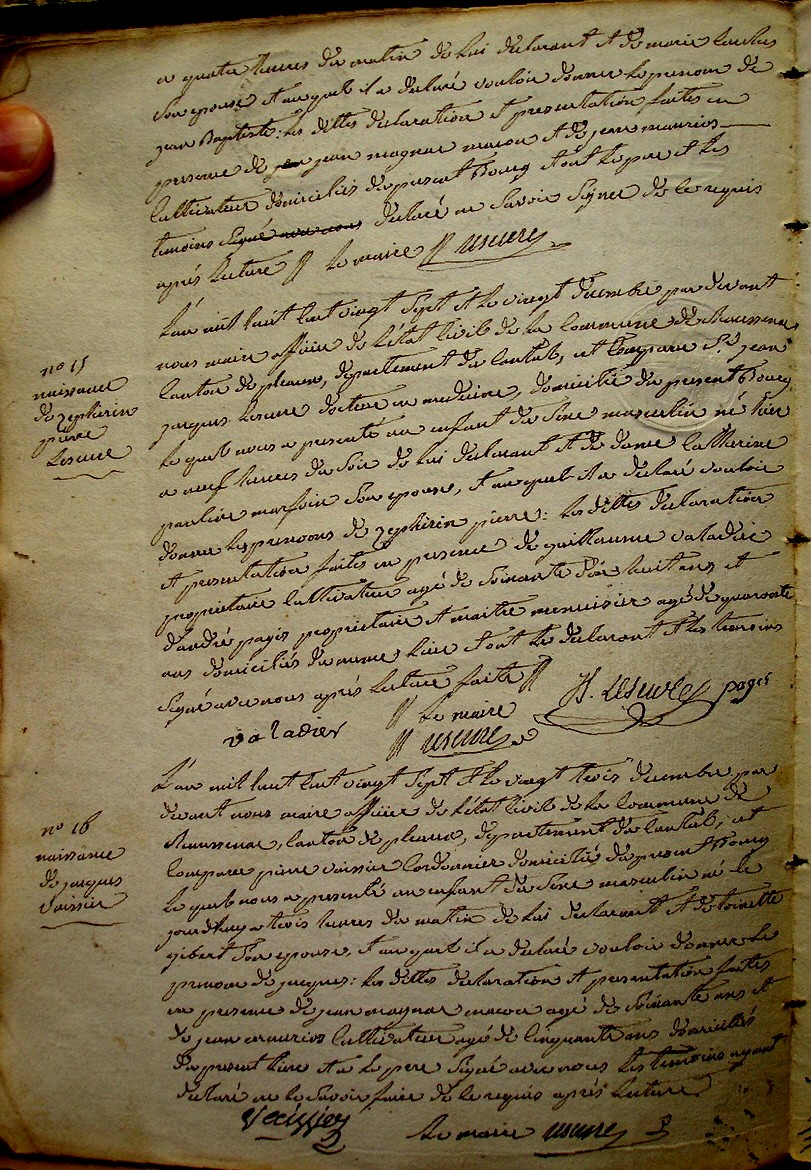 a quatre heures du matin de lui declarant et de marie
son epouse et auquel il a declaré vouloir donner le prenom de
jean Baptiste: les dittes declaration et presentation faites en
presence de jean magnac macon et de jean maurios
cultivateur domiciliés du present Bourg et ont le pere et les
temoins declaré ne savoir signer de le requis
après lecture // le maire // Lescure
nº 15
naissance
de zephirin
pierre
Lescure
L'an mil huit cent vingt sept et le vingt decembre par devant
nous maire officier de l'état civil de la commune de Roussenac
canton de pleaux, departement du Cantal, est comparu Sr. jean
jacques Lescure docteur en medecine, domicilié du present Bourg
le quel nous a presenté un enfant du sexe masculin né hier
a neuf heures du soir de lui declarant et de dame catherine
pauline marfoin son epouse, et auquel il a declaré vouloir
donner les prenoms de zephirin pierre: les dittes declaration
et presentation faites en presence de guillaume valadier
proprietaire cultivateur agé de soixante dix huit ans et
d'andré pagis proprietaire et maitre menuisier agé de quarante
ans domiciliés du meme lieu et ont le declarant et les temoins
signé avec nous après lecture faite //
J. Lescure pages
valadier
// le maire
// Lescure
nº 16
naissance
de jacques
Vaissier
L'an mil huit cent vingt sept et le vingt trois decembre par
devant nous maire officier de l'état civil de la commune de
Roussenac, canton de pleaux, departement du Cantal, est
comparu pierre vaissier cordonnier domicilié du present Bourg
le quel nous a presenté un enfant du sexe masculin né le
jourdhuy a trois heures du matin de lui declarant et de toinette
gibert son epouse, et auquel il a declaré vouloir donner le
prenom de jacques: les dittes declaration et presentation faites
en presence de jean magnac macon agé de soixante ans et
de jean maurios cultivateur agé de cinquante ans domiciliés
du present lieu et a le pere signé avec nous les temoins ayant
declaré ne le savoir faire de le requis après lecture
Veissier
le maire Lescure